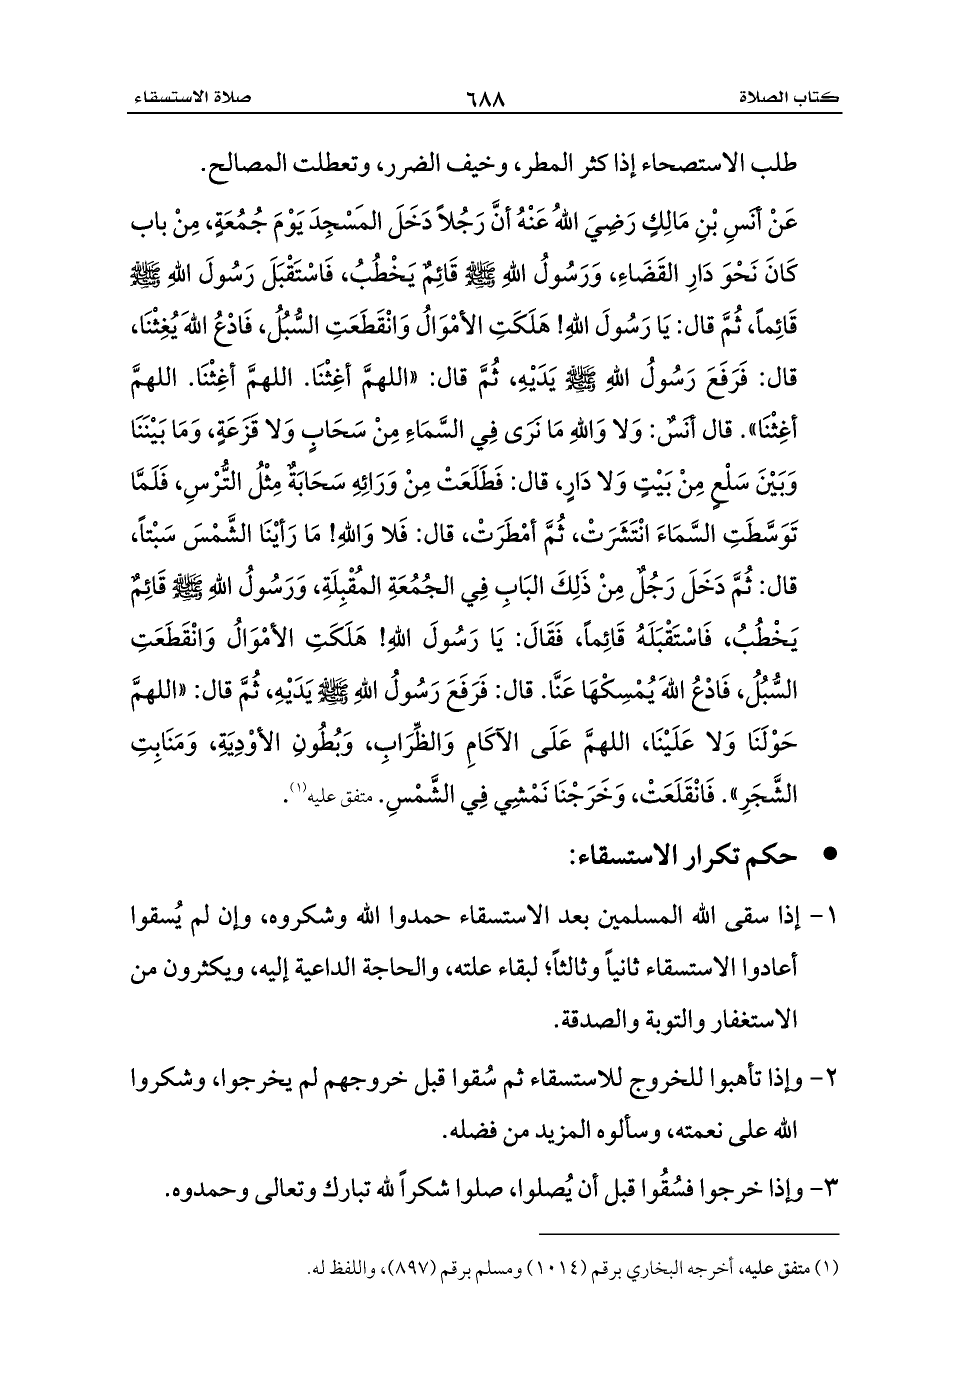 كتاب الصلاة ٦٨٨ صلاة الاستسقاء
طلب الاستصحاء إذا كثر المطر، وخيف الضرر، وتعطلت المصالح.
عَنْ أنَسِ بْنِ مَالِكٍ رَضِيَ اللهُ عَنْهُ أنَّ رَجُلاً دَخَلَ المَسْجِدَ يَوْمَ جُمُعَةٍ، مِنْ باب
كَانَ نَحْوَ دَارِ القَضَاءِ، وَرَسُولُ اللهِ ﷺ قَائِمٌ يَخْطُبُ، فَاسْتَقْبَلَ رَسُولَ اللهِ ﷺ
قَائِماً، ثُمَّ قال: يَا رَسُولَ اللهِ! هَلَكَتِ الأمْوَالُ وَانْقَطَعَتِ السُّبُلُ، فَادْعُ اللهَ يُغِثْنَا،
قال: فَرَفَعَ رَسُولُ اللهِ ﷺ يَدَيْهِ، ثُمَّ قال: «اللهمَّ أغِثْنَا. اللهمَّ أغِثْنَا. اللهمَّ
أغِثْنَا». قال أنَسٌ: وَلا وَاللهِ مَا نَرَى فِي السَّمَاءِ مِنْ سَحَابٍ وَلا قَزَعَةٍ، وَمَا بَيْنَنَا
وَبَيْنَ سَلْعٍ مِنْ بَيْتٍ وَلا دَارٍ، قال: فَطَلَعَتْ مِنْ وَرَائِهِ سَحَابَةٌ مِثْلُ التُّرْسِ، فَلَمَّا
تَوَسَّطَتِ السَّمَاءَ انْتَشَرَتْ، ثُمَّ أمْطَرَتْ، قال: فَلا وَاللهِ! مَا رَأيْنَا الشَّمْسَ سَبْتاً،
قال: ثُمَّ دَخَلَ رَجُلٌ مِنْ ذَلِكَ البَابِ فِي الجُمُعَةِ المُقْبِلَةِ، وَرَسُولُ اللهِ ﷺ قَائِمٌ
يَخْطُبُ، فَاسْتَقْبَلَهُ قَائِماً، فَقَالَ: يَا رَسُولَ اللهِ! هَلَكَتِ الأمْوَالُ وَانْقَطَعَتِ
السُّبُلُ، فَادْعُ اللهَ يُمْسِكْهَا عَنَّا. قال: فَرَفَعَ رَسُولُ اللهِ ﷺ يَدَيْهِ، ثُمَّ قال: «اللهمَّ
حَوْلَنَا وَلا عَلَيْنَا، اللهمَّ عَلَى الآكَامِ وَالظِّرَابِ، وَبُطُونِ الأوْدِيَةِ، وَمَنَابِتِ
الشَّجَرِ». فَانْقَلَعَتْ، وَخَرَجْنَا نَمْشِي فِي الشَّمْسِ. متفق عليه(١).
• حكم تكرار الاستسقاء:
١- إذا سقى الله المسلمين بعد الاستسقاء حمدوا الله وشكروه، وإن لم يُسقوا
أعادوا الاستسقاء ثانياً وثالثاً؛ لبقاء علته، والحاجة الداعية إليه، ويكثرون من
الاستغفار والتوبة والصدقة.
٢- وإذا تأهبوا للخروج للاستسقاء ثم سُقوا قبل خروجهم لم يخرجوا، وشكروا
الله على نعمته، وسألوه المزيد من فضله.
٣- وإذا خرجوا فسُقُوا قبل أن يُصلوا، صلوا شكراً لله تبارك وتعالى وحمدوه.
(١) متفق عليه، أخرجه البخاري برقم (١٠١٤) ومسلم برقم (٨٩٧)، واللفظ له.